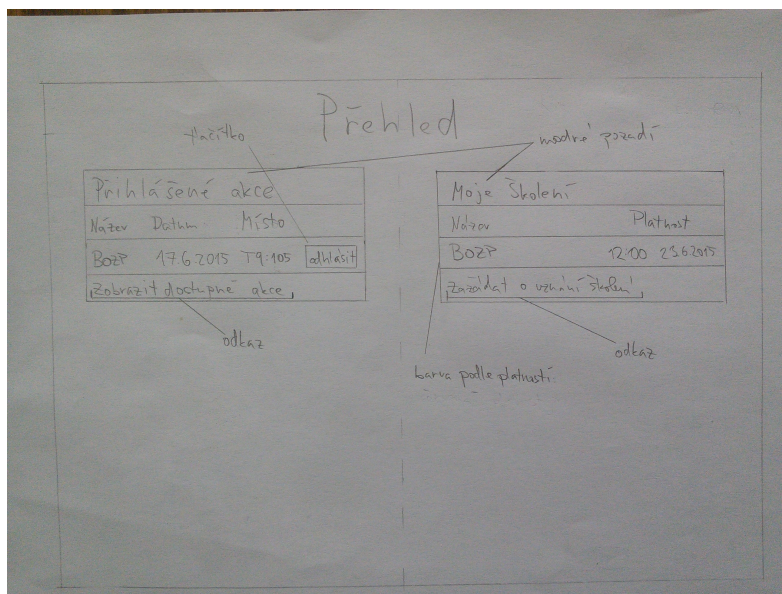 Přehled
tlačítko
modré pozadí
Přihlášené akce
Název Datum Místo
BOZP 17.6.2015 T9:105 odhlásit
Zobrazit dostupné akce
odkaz
Moje Školení
Název Platnost
BOZP 12:00 23.6.2015
Zažádat o uznání školení
odkaz
barva podle platnosti